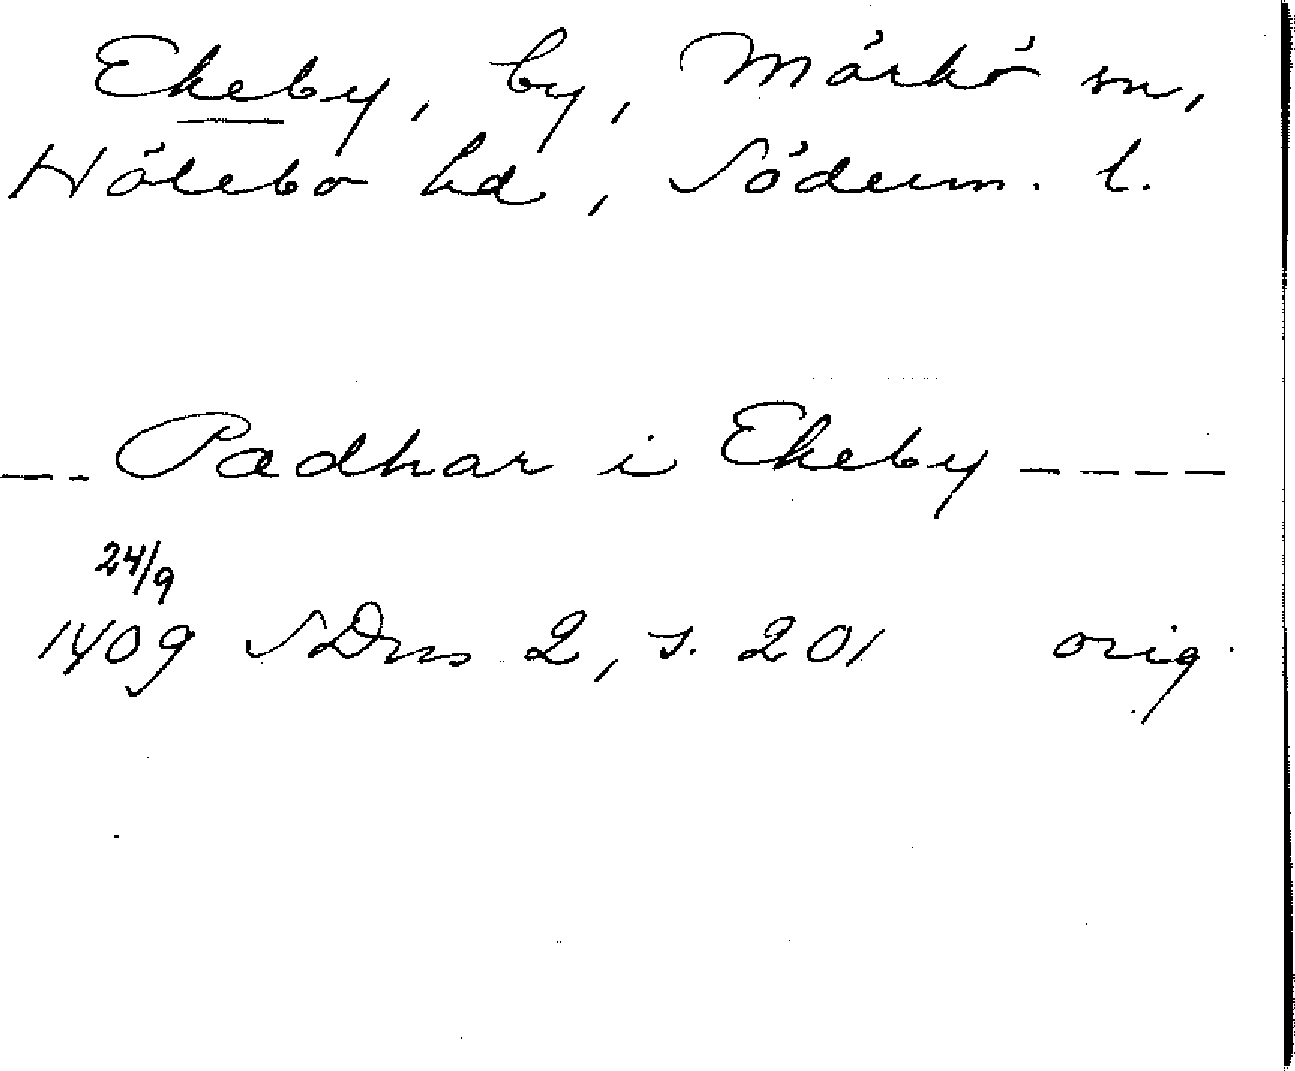 Ekeby, by, Mörkö sn,
Hölebo hd, Söderm. l.
--- Padhar i Ekeby ----
24/9
1409 SDns 2, s. 201 orig.